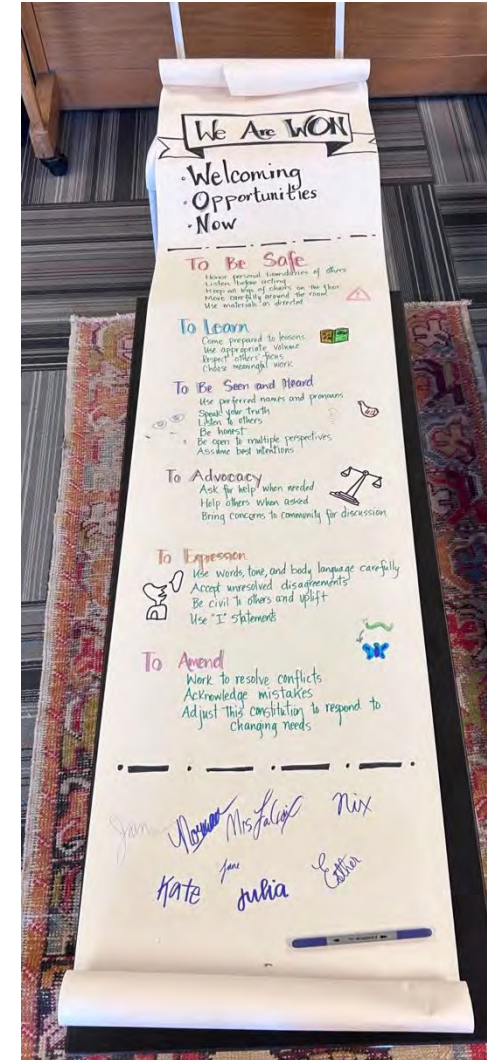 We Are WON
· Welcoming
· Opportunities
· Now
To Be Safe
Honor personal boundaries of others
Listen before acting
Keep all legs of chairs on the floor
Move carefully around the room
Use materials as directed
To Learn
Come prepared to lessons
Use appropriate volume
Respect others' focus
Choose meaningful work
To Be Seen and Heard
Use preferred names and pronouns
Speak your truth
Listen to others
Be honest
Be open to multiple perspectives
Assume best intentions
To Advocacy
Ask for help when needed
Help others when asked
Bring concerns to community for discussion
To Expression
Use words, tone, and body language carefully
Accept unresolved disagreements
Be civil to others and uplift
Use "I" statements
To Amend
Work to resolve conflicts
Acknowledge mistakes
Adjust this constitution to respond to
changing needs
Mrs Nix
Kate Jane Julia Esther